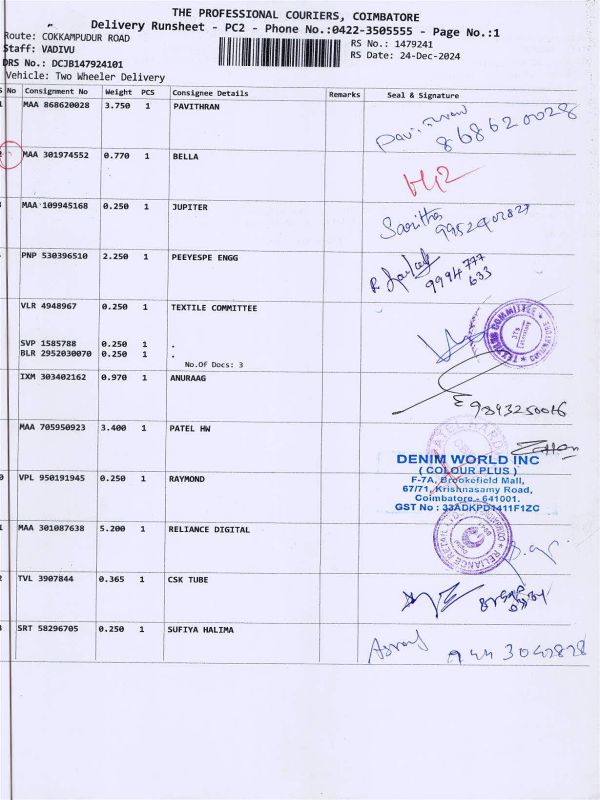 THE PROFESSIONAL COURIERS, COIMBATORE
Delivery Runsheet - PC2 - Phone No.:0422-3505555 - Page No.:1
Route: COKKAMPUDUR ROAD
RS No.: 1479241
Staff: VADIVU
RS Date: 24-Dec-2024
DRS No.: DCJB147924101
Vehicle: Two Wheeler Delivery
S No Consignment No Weight PCS Consignee Details Remarks Seal & Signature
1 MAA 868620028 3.750 1 PAVITHRAN
868620028
2 MAA 301974552 0.770 1 BELLA
MAA 109945168 0.250 1 JUPITER
Saritha
PNP 530396510 2.250 1 PEEYESPE ENGG
9994 777
633
VLR 4948967 0.250 1 TEXTILE COMMITTEE
TEXTILES COMMITTEE
COIMBATORE
SVP 1585788 0.250 1 .
BLR 2952030070 0.250 1 .
No.Of Docs: 3
IXM 303402162 0.970 1 ANURAAG
MAA 705950923 3.400 1 PATEL HW
DENIM WORLD INC
( COLOUR PLUS )
F-7A, Brookefield Mall,
67/71, Krishnasamy Road,
Coimbatore - 641001.
GST No : 33ADKPD1411F1ZC
0 VPL 950191945 0.250 1 RAYMOND
1 MAA 301087638 5.200 1 RELIANCE DIGITAL
RELIANCE RETAIL
2 TVL 3907844 0.365 1 CSK TUBE
3 SRT 58296705 0.250 1 SUFIYA HALIMA